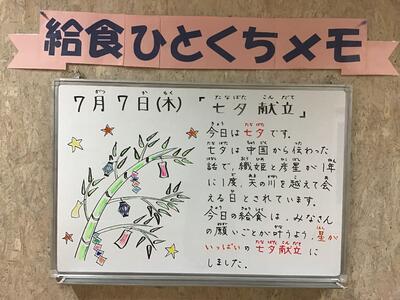 給食ひとくちメモ
7月7日(木) 「七夕献立」
今日は七夕です。
七夕は中国から伝わった
話で、織姫と彦星が1年
に1度、天の川を越えて会
える日とされています。
今日の給食は、みなさん
の願いごとが叶うよう、星が
いっぱいの七夕献立に
しました。